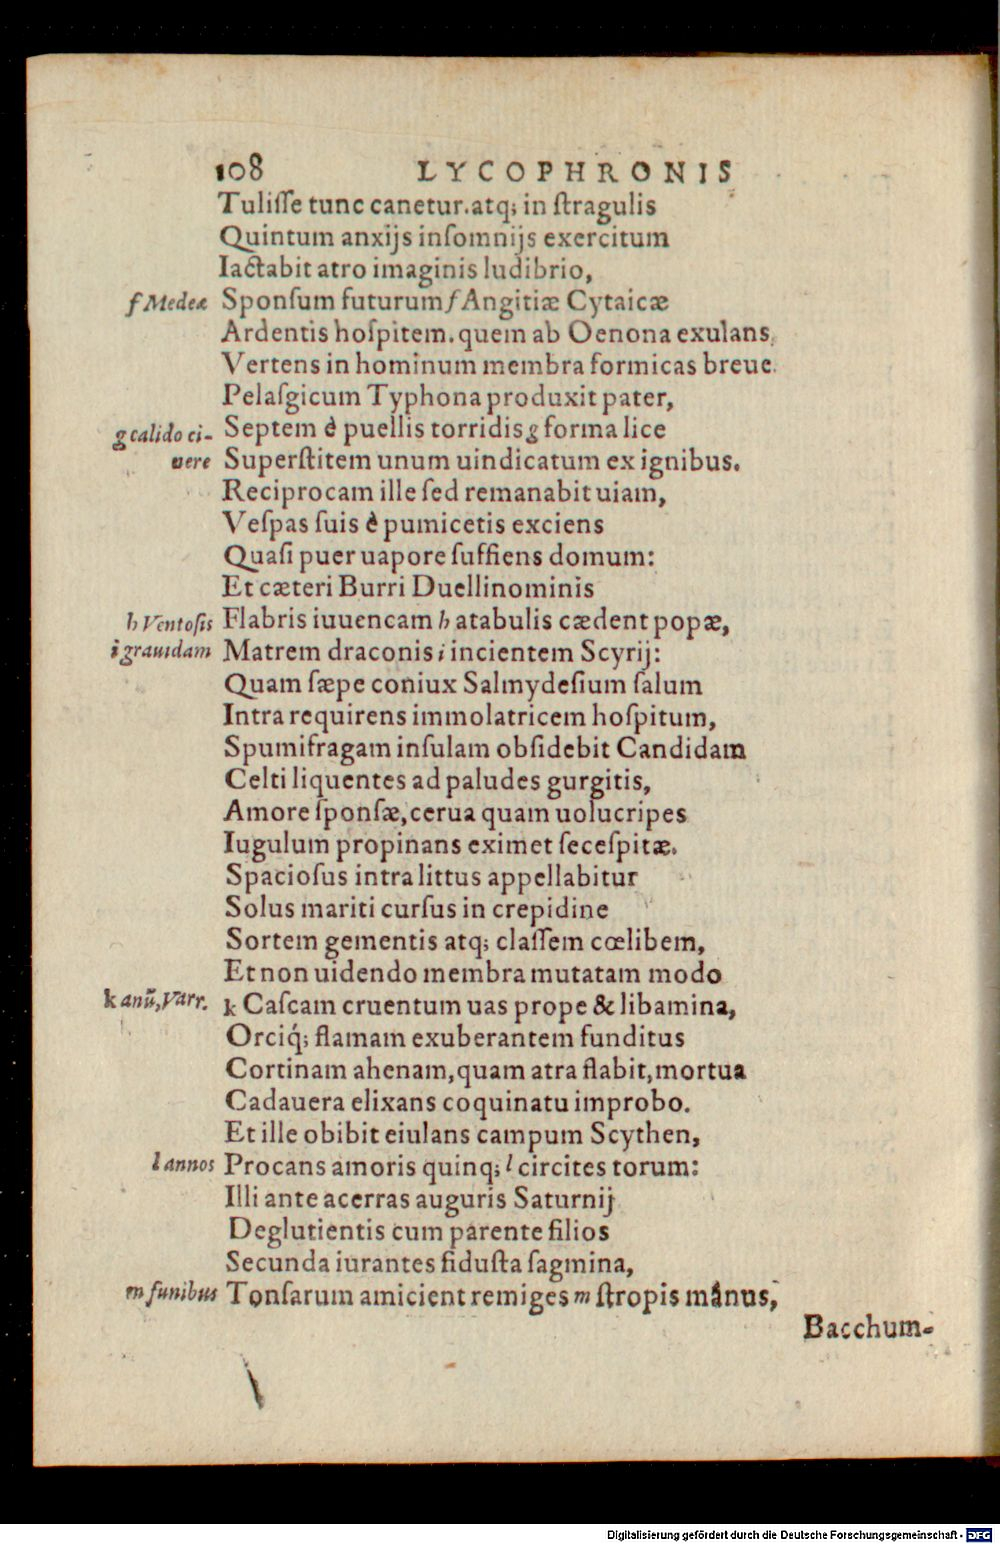 108 LYCOPHRONIS
Tuliſſe tunc canetur. atq; in ſtragulis
Quintum anxijs inſomnijs exercitum
Iactabit atro imaginis ludibrio,
f Medeæ Sponſum futurum f Angitiæ Cytaicæ
Ardentis hoſpitem. quem ab Oenona exulans,
Vertens in hominum membra formicas breue.
Pelaſgicum Typhona produxit pater,
g calido ci- Septem è puellis torridis g forma lice
nere Superſtitem unum uindicatum ex ignibus.
Reciprocam ille ſed remanabit uiam,
Veſpas ſuis è pumicetis exciens
Quaſi puer uapore ſuffiens domum:
Et cæteri Burri Duellinominis
h Ventoſis Flabris iuuencam h atabulis cædent popæ,
i grauidam Matrem draconis i incientem Scyrij:
Quam ſæpe coniux Salmydeſium ſalum
Intra requirens immolatricem hoſpitum,
Spumifragam inſulam obſidebit Candidam
Celti liquentes ad paludes gurgitis,
Amore ſponſæ, cerua quam uolucripes
Iugulum propinans eximet ſeceſpitæ.
Spacioſus intra littus appellabitur
Solus mariti curſus in crepidine
Sortem gementis atq; claſſem cœlibem,
Et non uidendo membra mutatam modo
k anũ, Varr. k Caſcam cruentum uas prope & libamina,
Orciq́; flamam exuberantem funditus
Cortinam ahenam, quam atra flabit, mortua
Cadauera elixans coquinatu improbo.
Et ille obibit eiulans campum Scythen,
l annos Procans amoris quinq; l circites torum:
Illi ante acerras auguris Saturnij
Deglutientis cum parente filios
Secunda iurantes fiduſta ſagmina,
m funibus Tonſarum amicient remiges m ſtropis manus,
Bacchum-
Digitalisierung gefördert durch die Deutsche Forschungsgemeinschaft - DFG